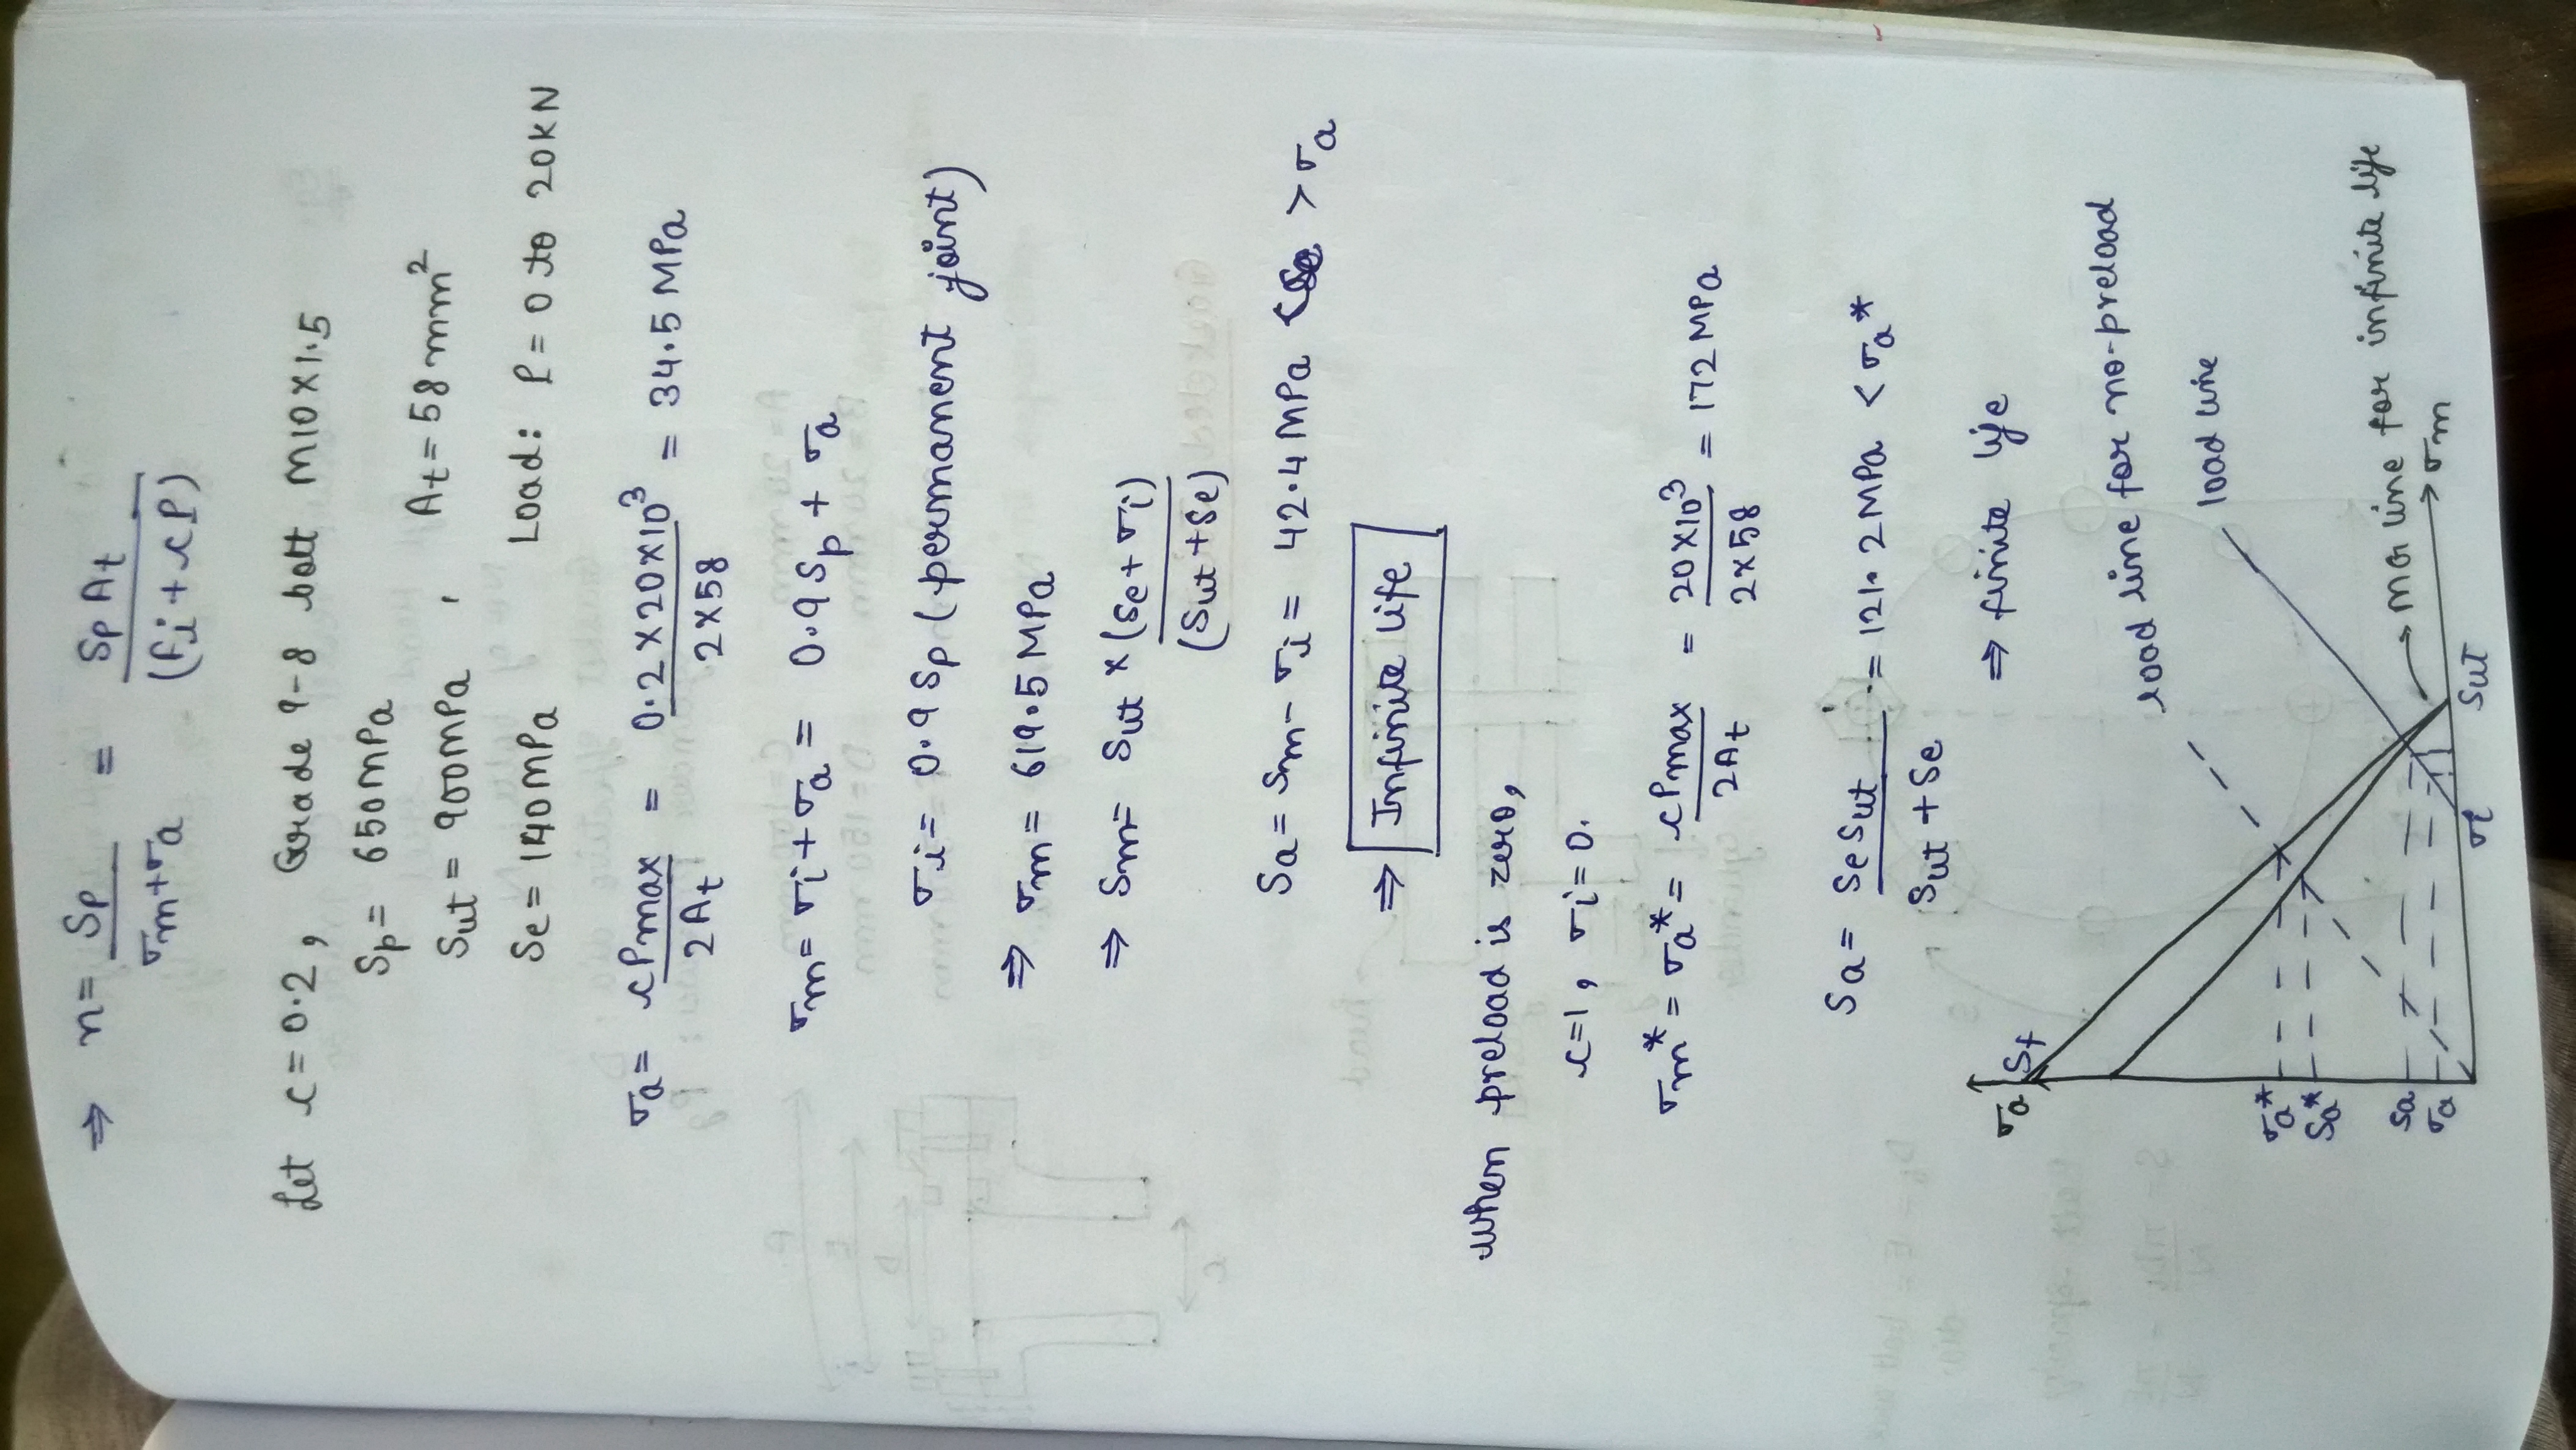 ⇒ n = Sp / (σm+σa) = Sp At / (Fi + cP)
Let c = 0.2, Grade 9-8 bolt M10×1.5
Sp = 650MPa
Sut = 900MPa , At = 58mm²
Se = 140MPa Load: P = 0 to 20kN
σa = cPmax / 2At = 0.2×20×10³ / 2×58 = 34.5 MPa
σm = σi + σa = 0.9Sp + σa
σi = 0.9 Sp (permanent joint)
⇒ σm = 619.5 MPa
⇒ Sm = Sut × (Se + σi) / (Sut + Se)
Sa = Sm - σi = 42.4 MPa > σa
⇒ Infinite life
when preload is zero,
c=1, σi = 0.
σm* = σa* = cPmax / 2At = 20×10³ / 2×58 = 172 MPa
Sa = Se Sut / Sut + Se = 121.2MPa < σa*
⇒ finite life
σa Sf
load line for no-preload
load line
σa*
Sa*
Sa
σa
MG line for infinite life
σm
σi Sut